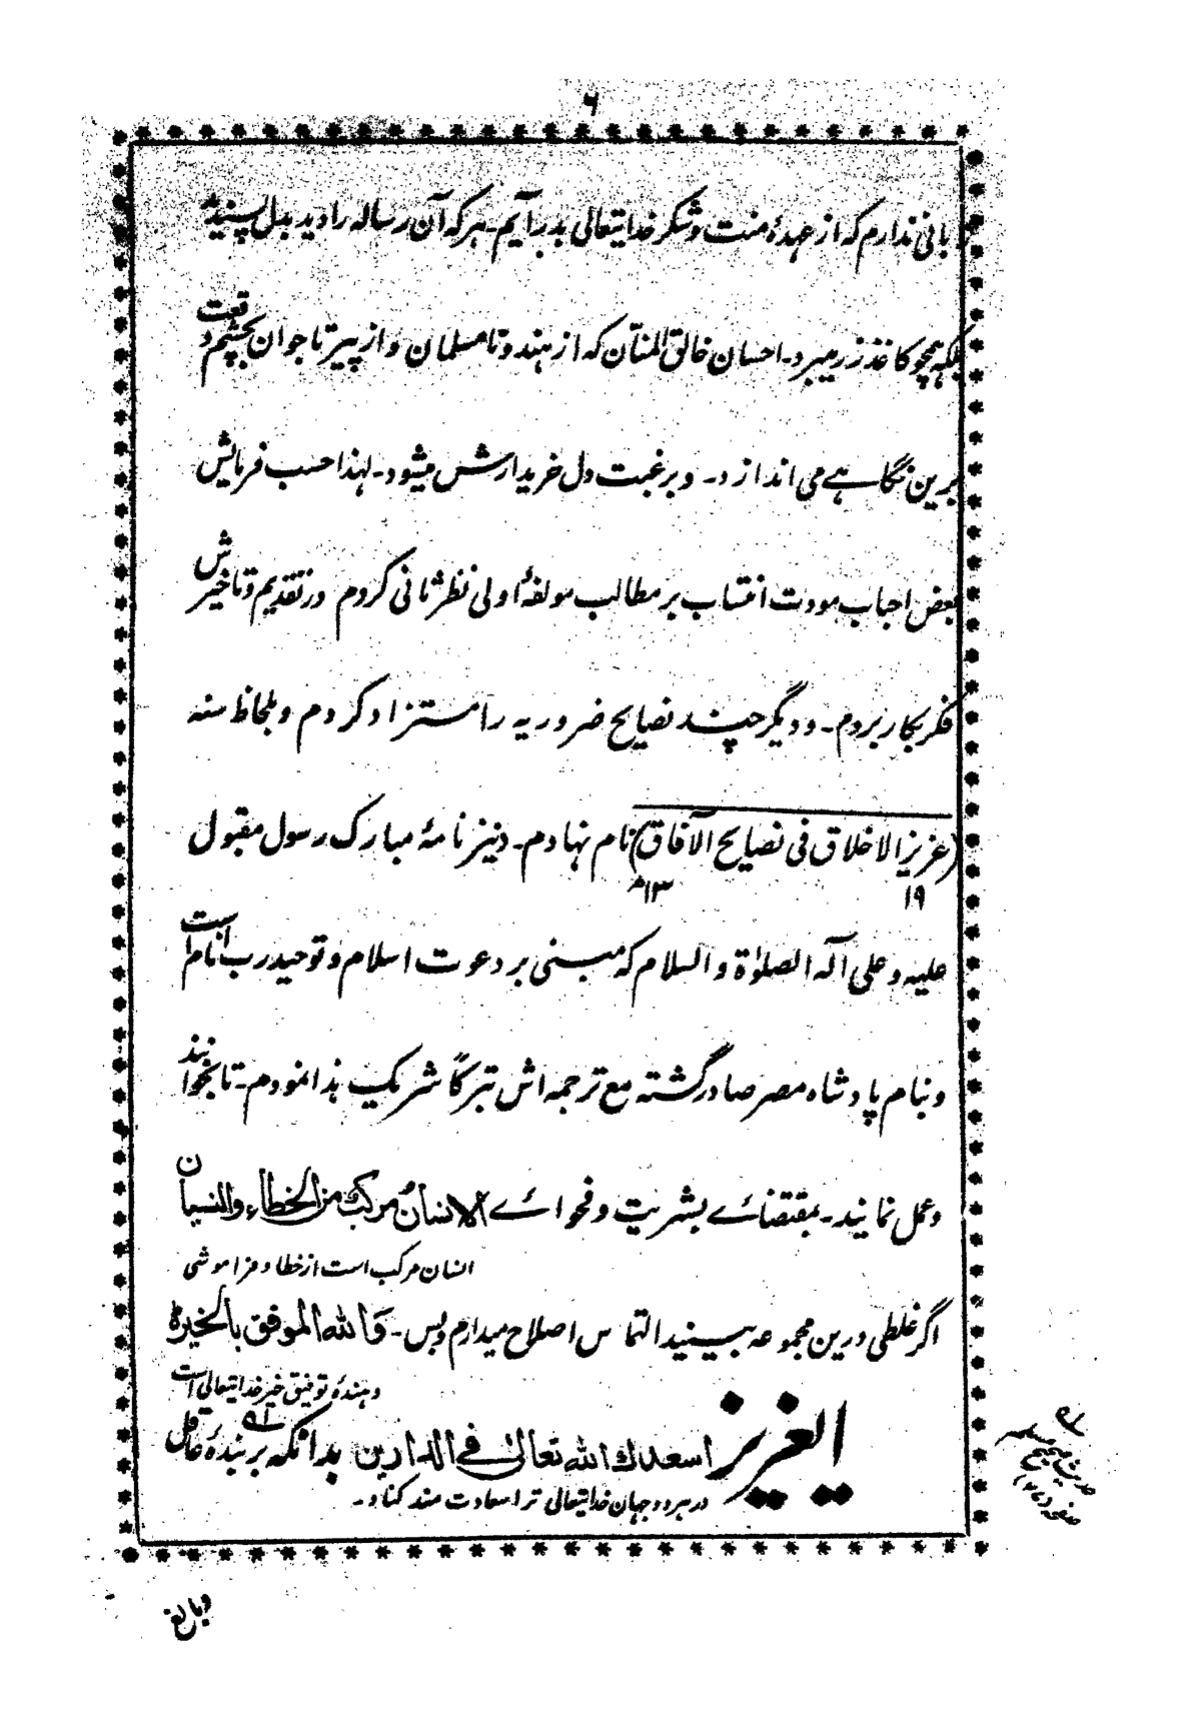 ۶
بانی ندارم که از عهدهٔ منت و شکر خدایتعالی بدر آیم۔ هر که آن رساله را دید بدل پسندید
بلکه همچو کاغذ زر میبرد۔ احسان خالق المنّان که از هندو تا مسلمان و از پیر تا جوان بچشم وقعت
برین نگاہے می اندازد۔ و برغبت دل خریدارش میشود۔ لهذا حسب فرمایش
بعض احباب مودت انتساب بر مطالب مولفهٔ اولی نظر ثانی کردم و در تقدیم و تاخیرش
فکر بکار بردم۔ و دیگر چند نصایح ضروریه را مستزاد کردم و بلحاظ سنه
(عزیز الاخلاق فی نصایح الآفاق) نام نهادم۔ و نیز نامهٔ مبارک رسول مقبول
۱۹ ۱۳ھ
علیه و علی آله الصلوٰة و السلام که مبنی بر دعوت اسلام و توحید رب انام است
و بنام پادشاه مصر صادر گشته مع ترجمه اش تبرکاً شریک هذا نمودم۔ تا بخوانند
و عمل نمایند۔ بمقتضائے بشریت و فحوائے الانسانُ مرکبٌ من الخطاء والنسیان
انسان مرکب است از خطا و فراموشی
اگر غلطی درین مجموعه ببینید التماس اصلاح میدارم و بس۔ وَالله الموفق بالخیر ط
دهندهٔ توفیق خیر خدایتعالی است
ایعزیز اسعدك الله تعالیٰ فے الدارین بدانکه بر بندهٔ عاقل
در هر دو جهان خدایتعالی ترا سعادت مند کناد۔
حدیث صحیح مسلم
صفحه (۷۲)
و بالغ